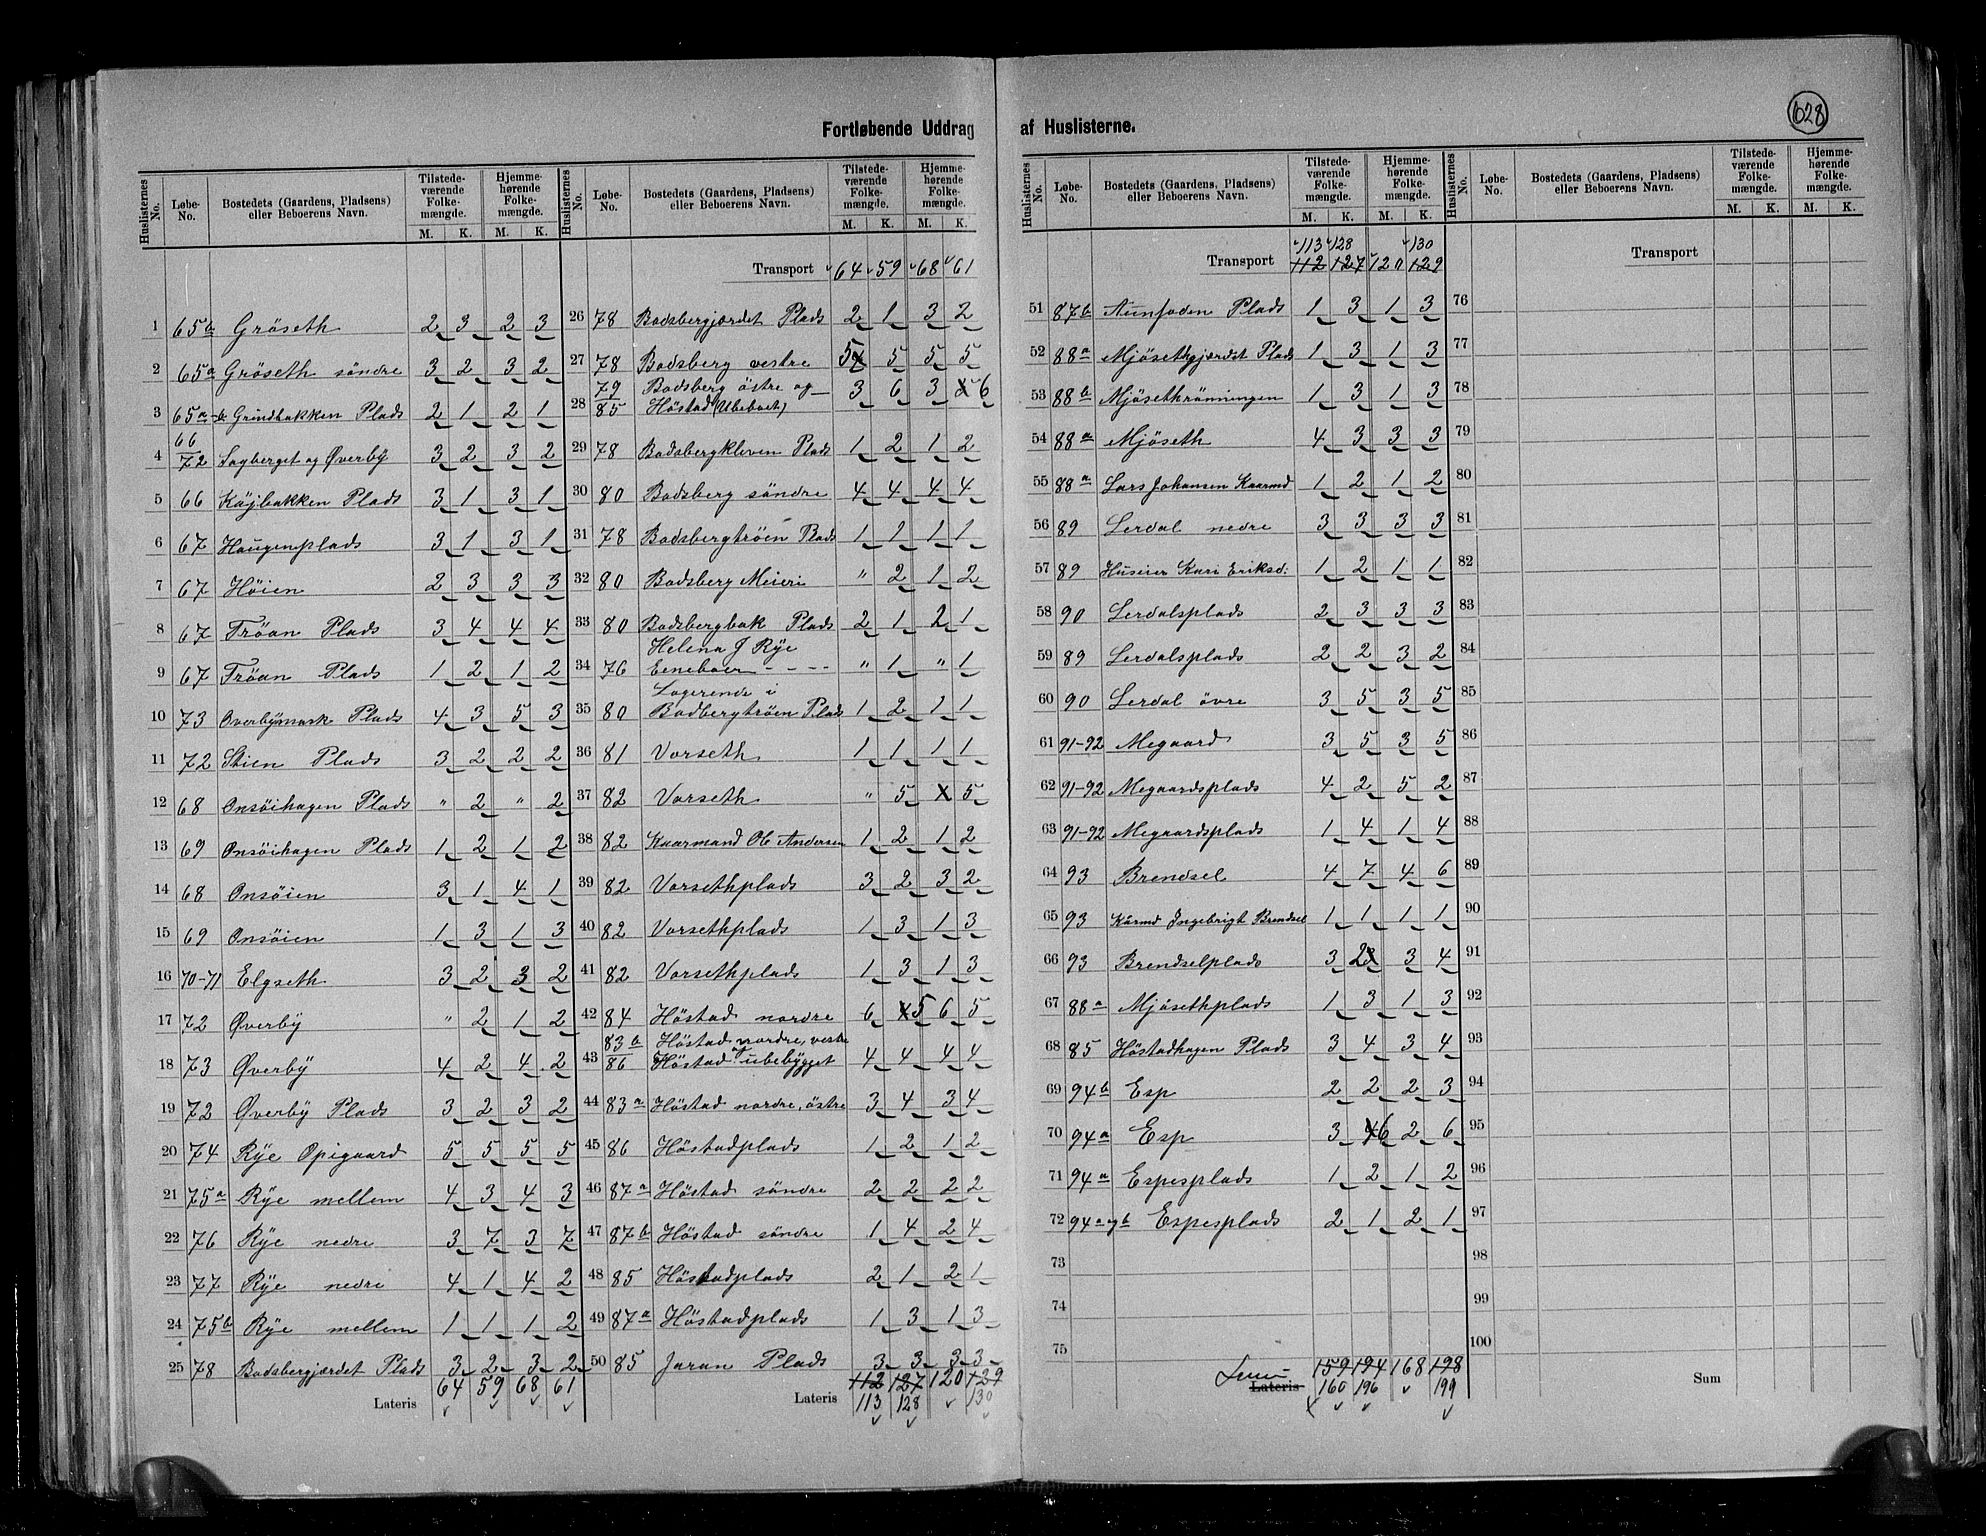 628
Fortløbende Uddrag af Huslisterne.
Huslisternes No. Løbe-No. Bostedets (Gaardens, Pladsens) eller Beboerens Navn. Tilstedeværende Folkemængde. M. K. Hjemmehørende Folkemængde. M. K.
1 65b Gröseth 2 3 2 3
2 65a Gröseth söndre 3 2 3 2
3 65a-b Grindbakken Plads 2 1 2 1
4 66/72 Sagberget og Øverby 3 2 3 2
5 66 Köjbakken Plads 3 1 3 1
6 67 Haugenplads 3 1 3 1
7 67 Höien 2 3 3 3
8 67 Tröan Plads 3 4 4 4
9 67 Tröan Plads 1 2 1 2
10 73 Överbymark Plads 4 3 5 3
11 72 Stien Plads 3 2 2 2
12 68 Onsöihagen Plads " 2 " 2
13 69 Onsöihagen Plads 1 2 1 2
14 68 Onsöien 3 1 4 1
15 69 Onsöien 1 3 1 3
16 70-71 Elgseth 3 2 3 2
17 72 Øverby " 2 1 2
18 73 Øverby 4 2 4 2
19 72 Øverby Plads 3 2 3 2
20 74 Rye Opigaard 5 5 5 5
21 75a Rye mellem 4 3 4 3
22 76 Rye nedre 3 7 3 7
23 77 Rye nedre 4 1 4 2
24 75b Rye mellem 1 1 1 2
25 78 Badsbergjærdet Plads 3 2 3 2
Lateris 64 59 68 61
Huslisternes No. Løbe-No. Bostedets (Gaardens, Pladsens) eller Beboerens Navn. Tilstedeværende Folkemængde. M. K. Hjemmehørende Folkemængde. M. K.
Transport 64 59 68 61
26 78 Badsbergjærdet Plads 2 1 3 2
27 78 Badsberg vestre 5 5 5 5
79 Badsberg östre og 3 6 3 6
28 85 Höstad (Ubeboet)
29 78 Badsbergkleven Plads 1 2 1 2
30 80 Badsberg söndre 4 4 4 4
31 78 Badsbergtröen Plads 1 1 1 1
32 80 Badsberg Meieri " 2 1 2
33 80 Badsbergbak Plads 2 1 2 1
Helena J Rye
34 76 Eneboer - - - - " 1 " 1
Logerende i
35 80 Badbergtröen Plads 1 2 1 1
36 81 Vorseth 1 1 1 1
37 82 Vorseth " 5 5
38 82 Kaarmand Ol Andersen 1 2 1 2
39 82 Vorsethplads 3 2 3 2
40 82 Vorsethplads 1 3 1 3
41 82 Vorsethplads 1 3 1 3
42 84 Höstad nordre 6 5 6 5
83b Höstad nordre, vestre
43 86 Höstad og ubebygget 4 4 4 4
44 83a Höstad nordre, östre 3 4 3 4
45 86 Höstadplads 1 2 1 2
46 87a Höstad söndre 2 2 2 2
47 87b Höstad söndre 1 4 2 4
48 85 Höstadplads 2 1 2 1
49 87a Höstadplads 1 3 1 3
50 85 Jaran Plads 3 3 3 3
112 127 120 129
Lateris 113 128 130
Huslisternes No. Løbe-No. Bostedets (Gaardens, Pladsens) eller Beboerens Navn. Tilstedeværende Folkemængde. M. K. Hjemmehørende Folkemængde. M. K.
113 128 130
Transport 112 127 120 129
51 87b Plads 1 3 1 3
52 88a Mjösethgjærdet Plads 1 3 1 3
53 88b Mjösethrönningen 1 3 1 3
54 88a Mjöseth 4 3 3 3
55 88a Lars Johansen Kaarmd 1 2 1 2
56 89 Lerdal nedre 3 3 3 3
57 89 Huseier Kari Eriksd: 1 2 1 1
58 90 Lerdalsplads 2 3 3 3
59 89 Lerdalsplads 2 2 3 2
60 90 Lerdal övre 3 5 3 5
61 91-92 Megaard 3 5 3 5
62 91-92 Megaardsplads 4 2 5 2
63 91-92 Megaardsplads 1 4 1 4
64 93 Brendsel 4 7 4 6
65 93 Kårmd Ingebrigt Brendsel 1 1 1 1
66 93 Brendselplads 3 2 3 4
67 88a Mjösethplads 1 3 1 3
68 85 Höstadhagen Plads 3 4 3 4
69 94b Esp 2 2 2 3
70 94a Esp 3 6 2 6
71 94a Espesplads 1 2 1 2
72 94a og b Espesplads 2 1 2 1
73
74
75
159 194 168 198
Lateris 160 196 199
Huslisternes No. Løbe-No. Bostedets (Gaardens, Pladsens) eller Beboerens Navn. Tilstedeværende Folkemængde. M. K. Hjemmehørende Folkemængde. M. K.
Transport
76
77
78
79
80
81
82
83
84
85
86
87
88
89
90
91
92
93
94
95
96
97
98
99
100
Sum